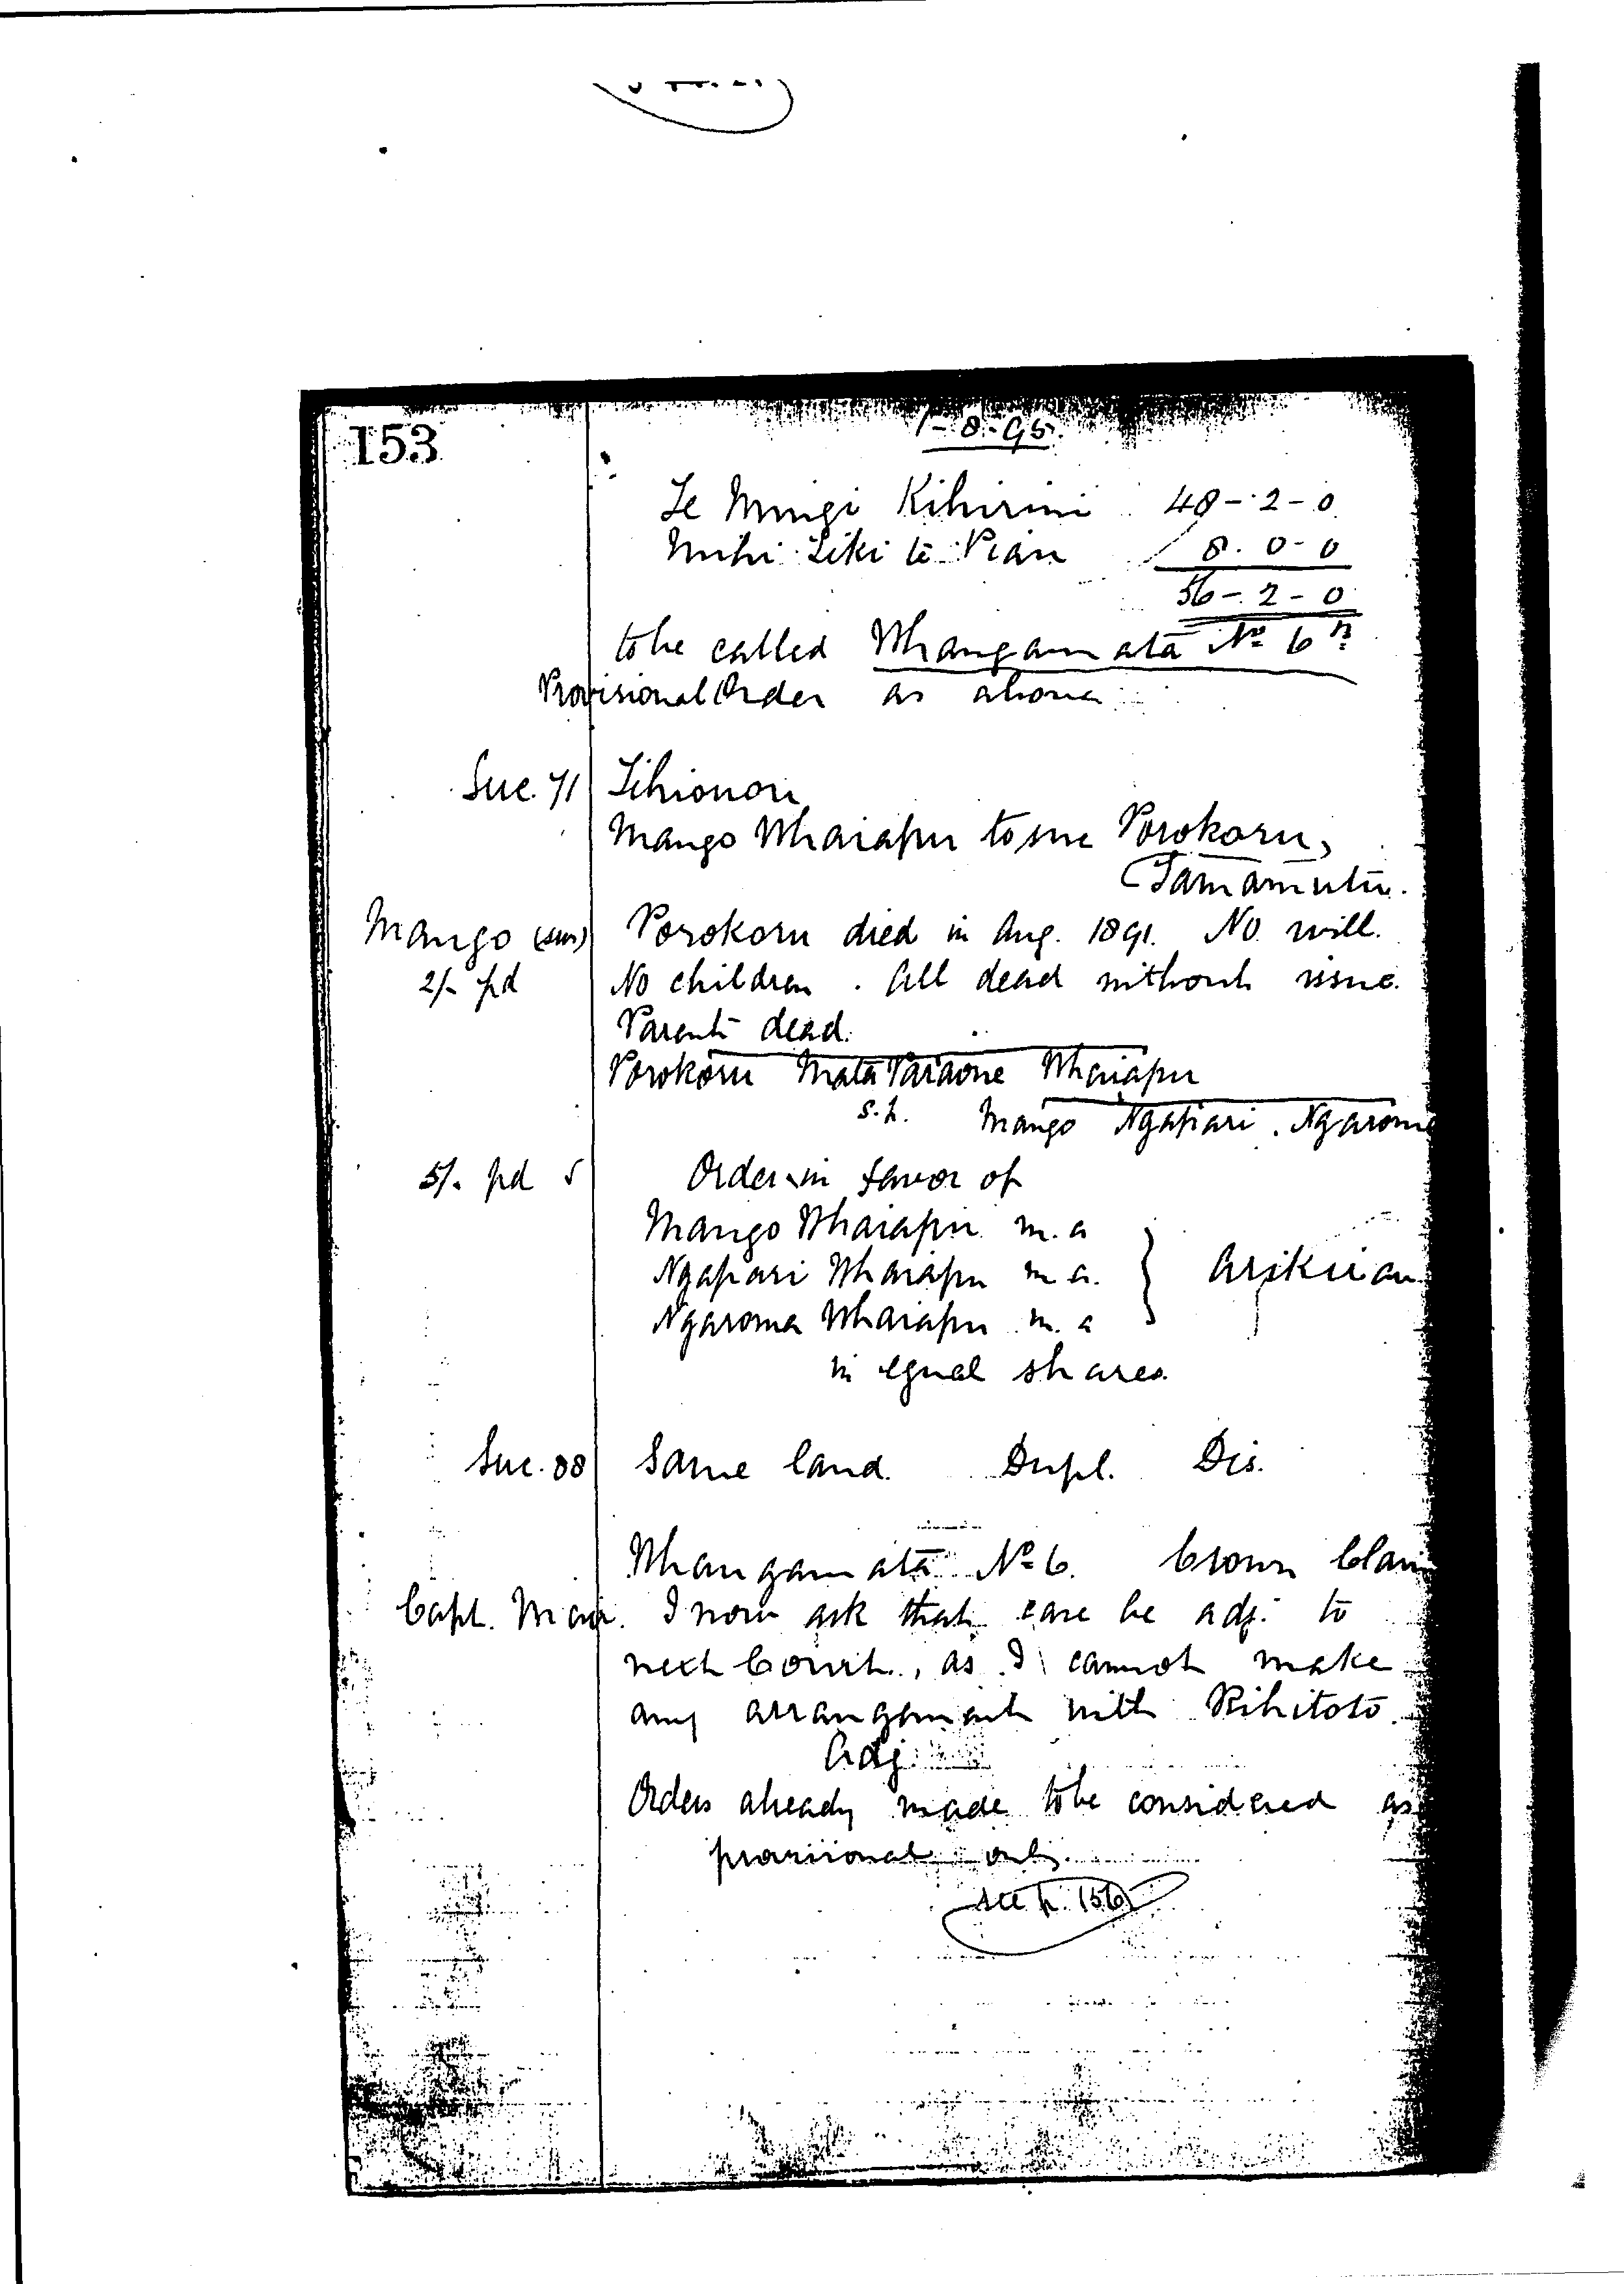 153
1-8-95.
Te Mingi Kihirini 48-2-0
Mihi Tiki te Piau 8.0-0
56-2-0
to be called Whangamata No 6B
Provisional Order as above
Suc. 71 Tihionou
Mango Wharapu to suc Porokoru,
Tamamutu.
Mango (sw) Porokoru died in Aug. 1891. No will.
2/- pd No children. All dead without issue.
Parents dead.
Porokoru Mata Paraone Wharapu
s.h. Mango Ngapari. Ngaroma
5/. pd Order in favor of
Mango Wharapu m. a
Ngapari Wharapu m a.
Ngaroma Wharapu m. a
in equal shares.
Suc. 88 Same land. Dupl. Dis.
Whangamata No 6. Crown Claim
Capt. Mair. I now ask that case be adj. to
next Court, as I cannot make
any arrangement with Rihitoto.
Adj
Orders already made to be considered as
provisional only.
See p. 156